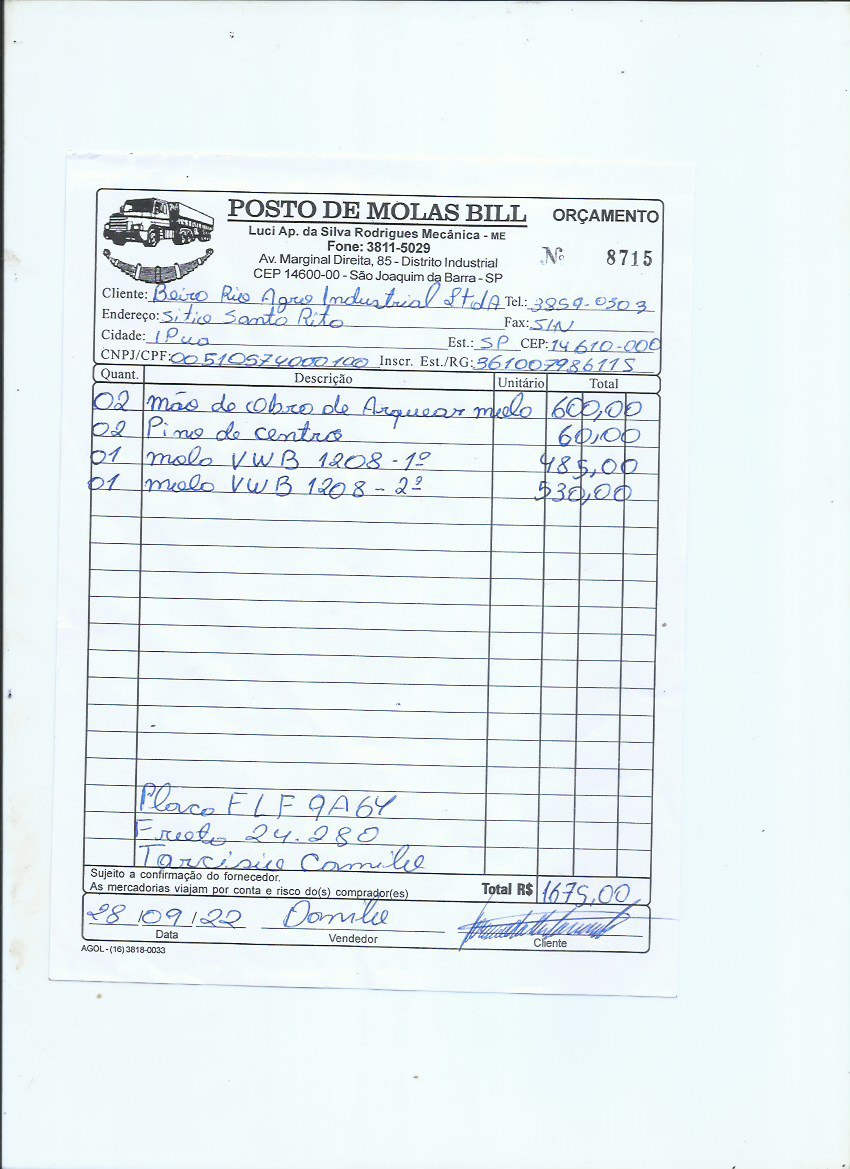 POSTO DE MOLAS BILL ORÇAMENTO
Luci Ap. da Silva Rodrigues Mecânica - ME
Fone: 3811-5029
Av. Marginal Direita, 85 - Distrito Industrial
CEP 14600-00 - São Joaquim da Barra - SP
Nº 8715
Cliente: Beira Rio Agro Industrial LtdA Tel.: 3859-0503
Endereço: Sitio Santa Rita Fax: S/N
Cidade: IPua Est.: SP CEP: 14610-000
CNPJ/CPF: 00510574000100 Inscr. Est./RG: 361007986115
Quant. Descrição Unitário Total
02 mão de obra de Arquear mola 600,00
02 Pino de centro 60,00
01 mola VWB 1208-1º 485,00
01 mola VWB 1208-2º 530,00
Placa FLF 9A64
24.280
Tarcisio Camilo
Sujeito a confirmação do fornecedor.
As mercadorias viajam por conta e risco do(s) comprador(es) Total R$ 1675,00
28/09/22 Danilo
Data Vendedor Cliente
AGOL - (16) 3818-0033